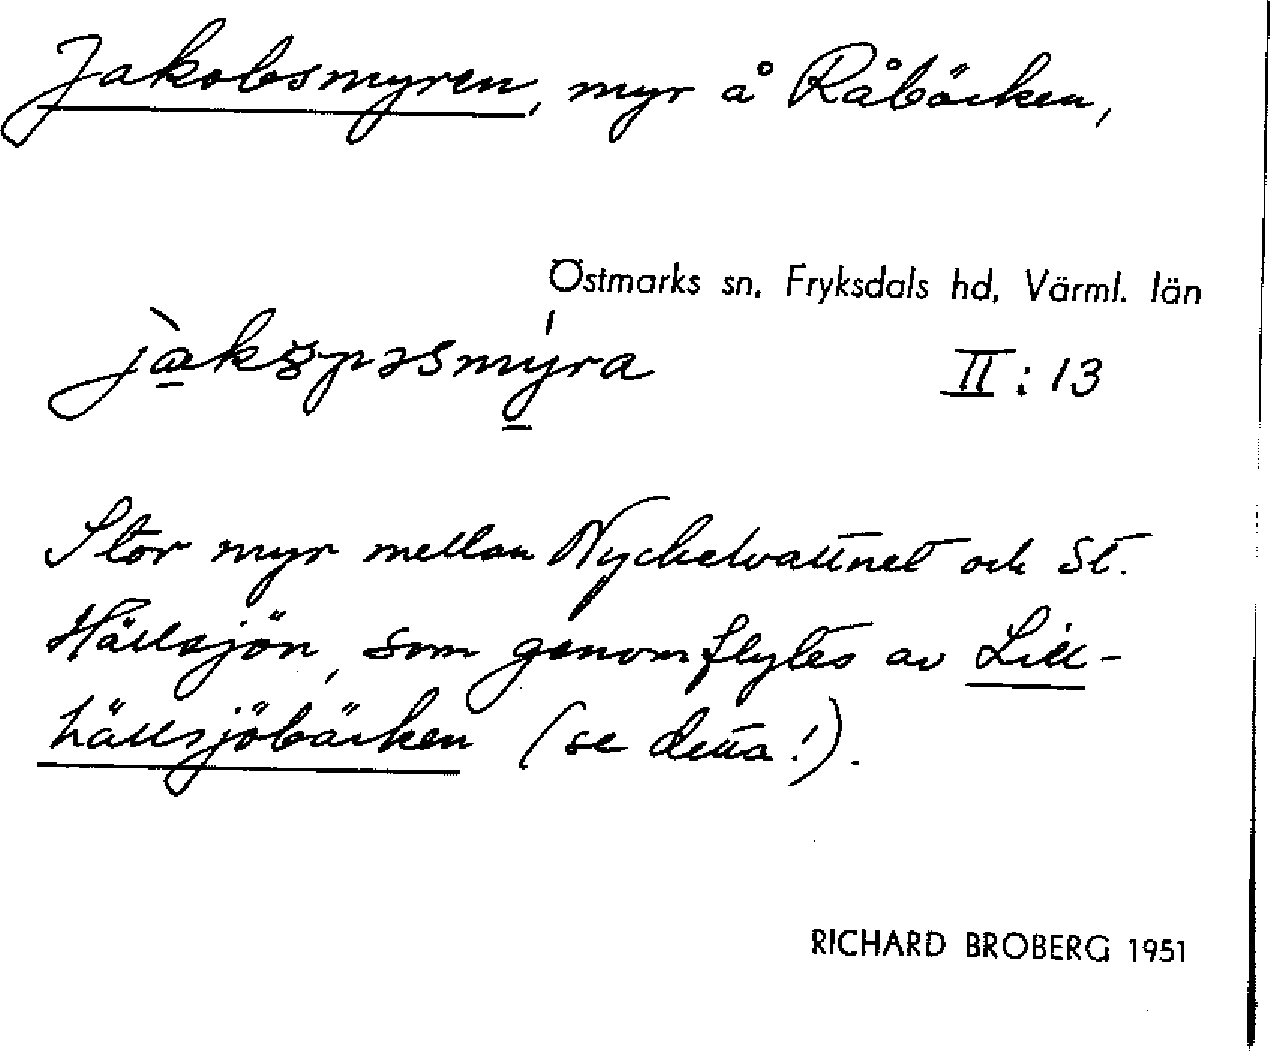 Jakobsmyren, myr å Råbäcken,
Östmarks sn, Fryksdals hd, Värml. län
II:13
Stor myr mellan Nyckelvattnet och St.
Hällsjön, som genomflytes av Lill-
hällsjöbäcken (se detta!).
RICHARD BROBERG 1951